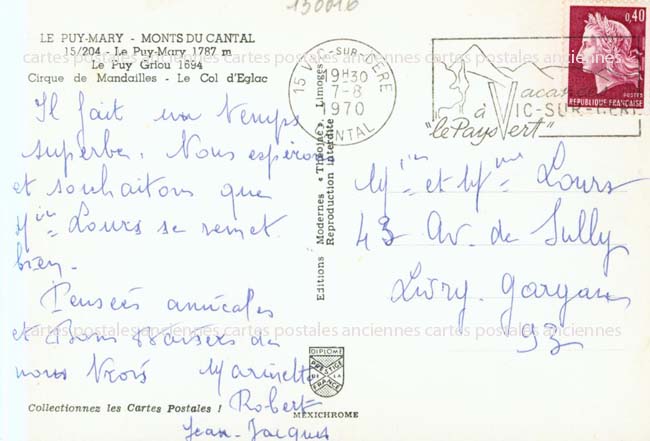 130016
LE PUY-MARY - MONTS DU CANTAL
15/204 - Le Puy-Mary 1787 m
Le Puy Griou 1694
Cirque de Mandailles - Le Col d'Eglac
Il fait un temps
superbe. Nous espérons
et souhaitons que
Mʳ Lours se remet
bien.
Pensées amicales
et Bons Baisers de
nous trois Marinette
Robert
Jean-Jacques
Collectionnez les Cartes Postales !
Editions Modernes "Théojac", Limoges
Reproduction interdite
DIPLOME
PRESTIGE
DE LA
FRANCE
MEXICHROME
15 VIC-SUR-CERE
19H30
7-8
1970
CANTAL
Vacances
à VIC-SUR-CERE
"le Pays Vert"
0,40
POSTES
REPUBLIQUE FRANÇAISE
et Mᵐᵉ Lours
43 Av. de Sully
Livry-Gargan
93
cartes postales anciennes cartes postales anciennes cartes postales anciennes